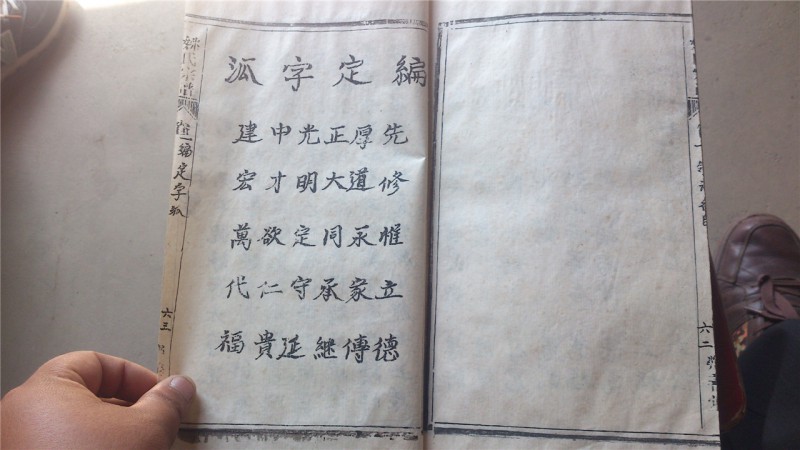 編定字泒
先修惟立德
厚道永家傳
正大同承繼
光明定守延
中才欲仁貴
建宏萬代福
一編定字泒
六三
六二